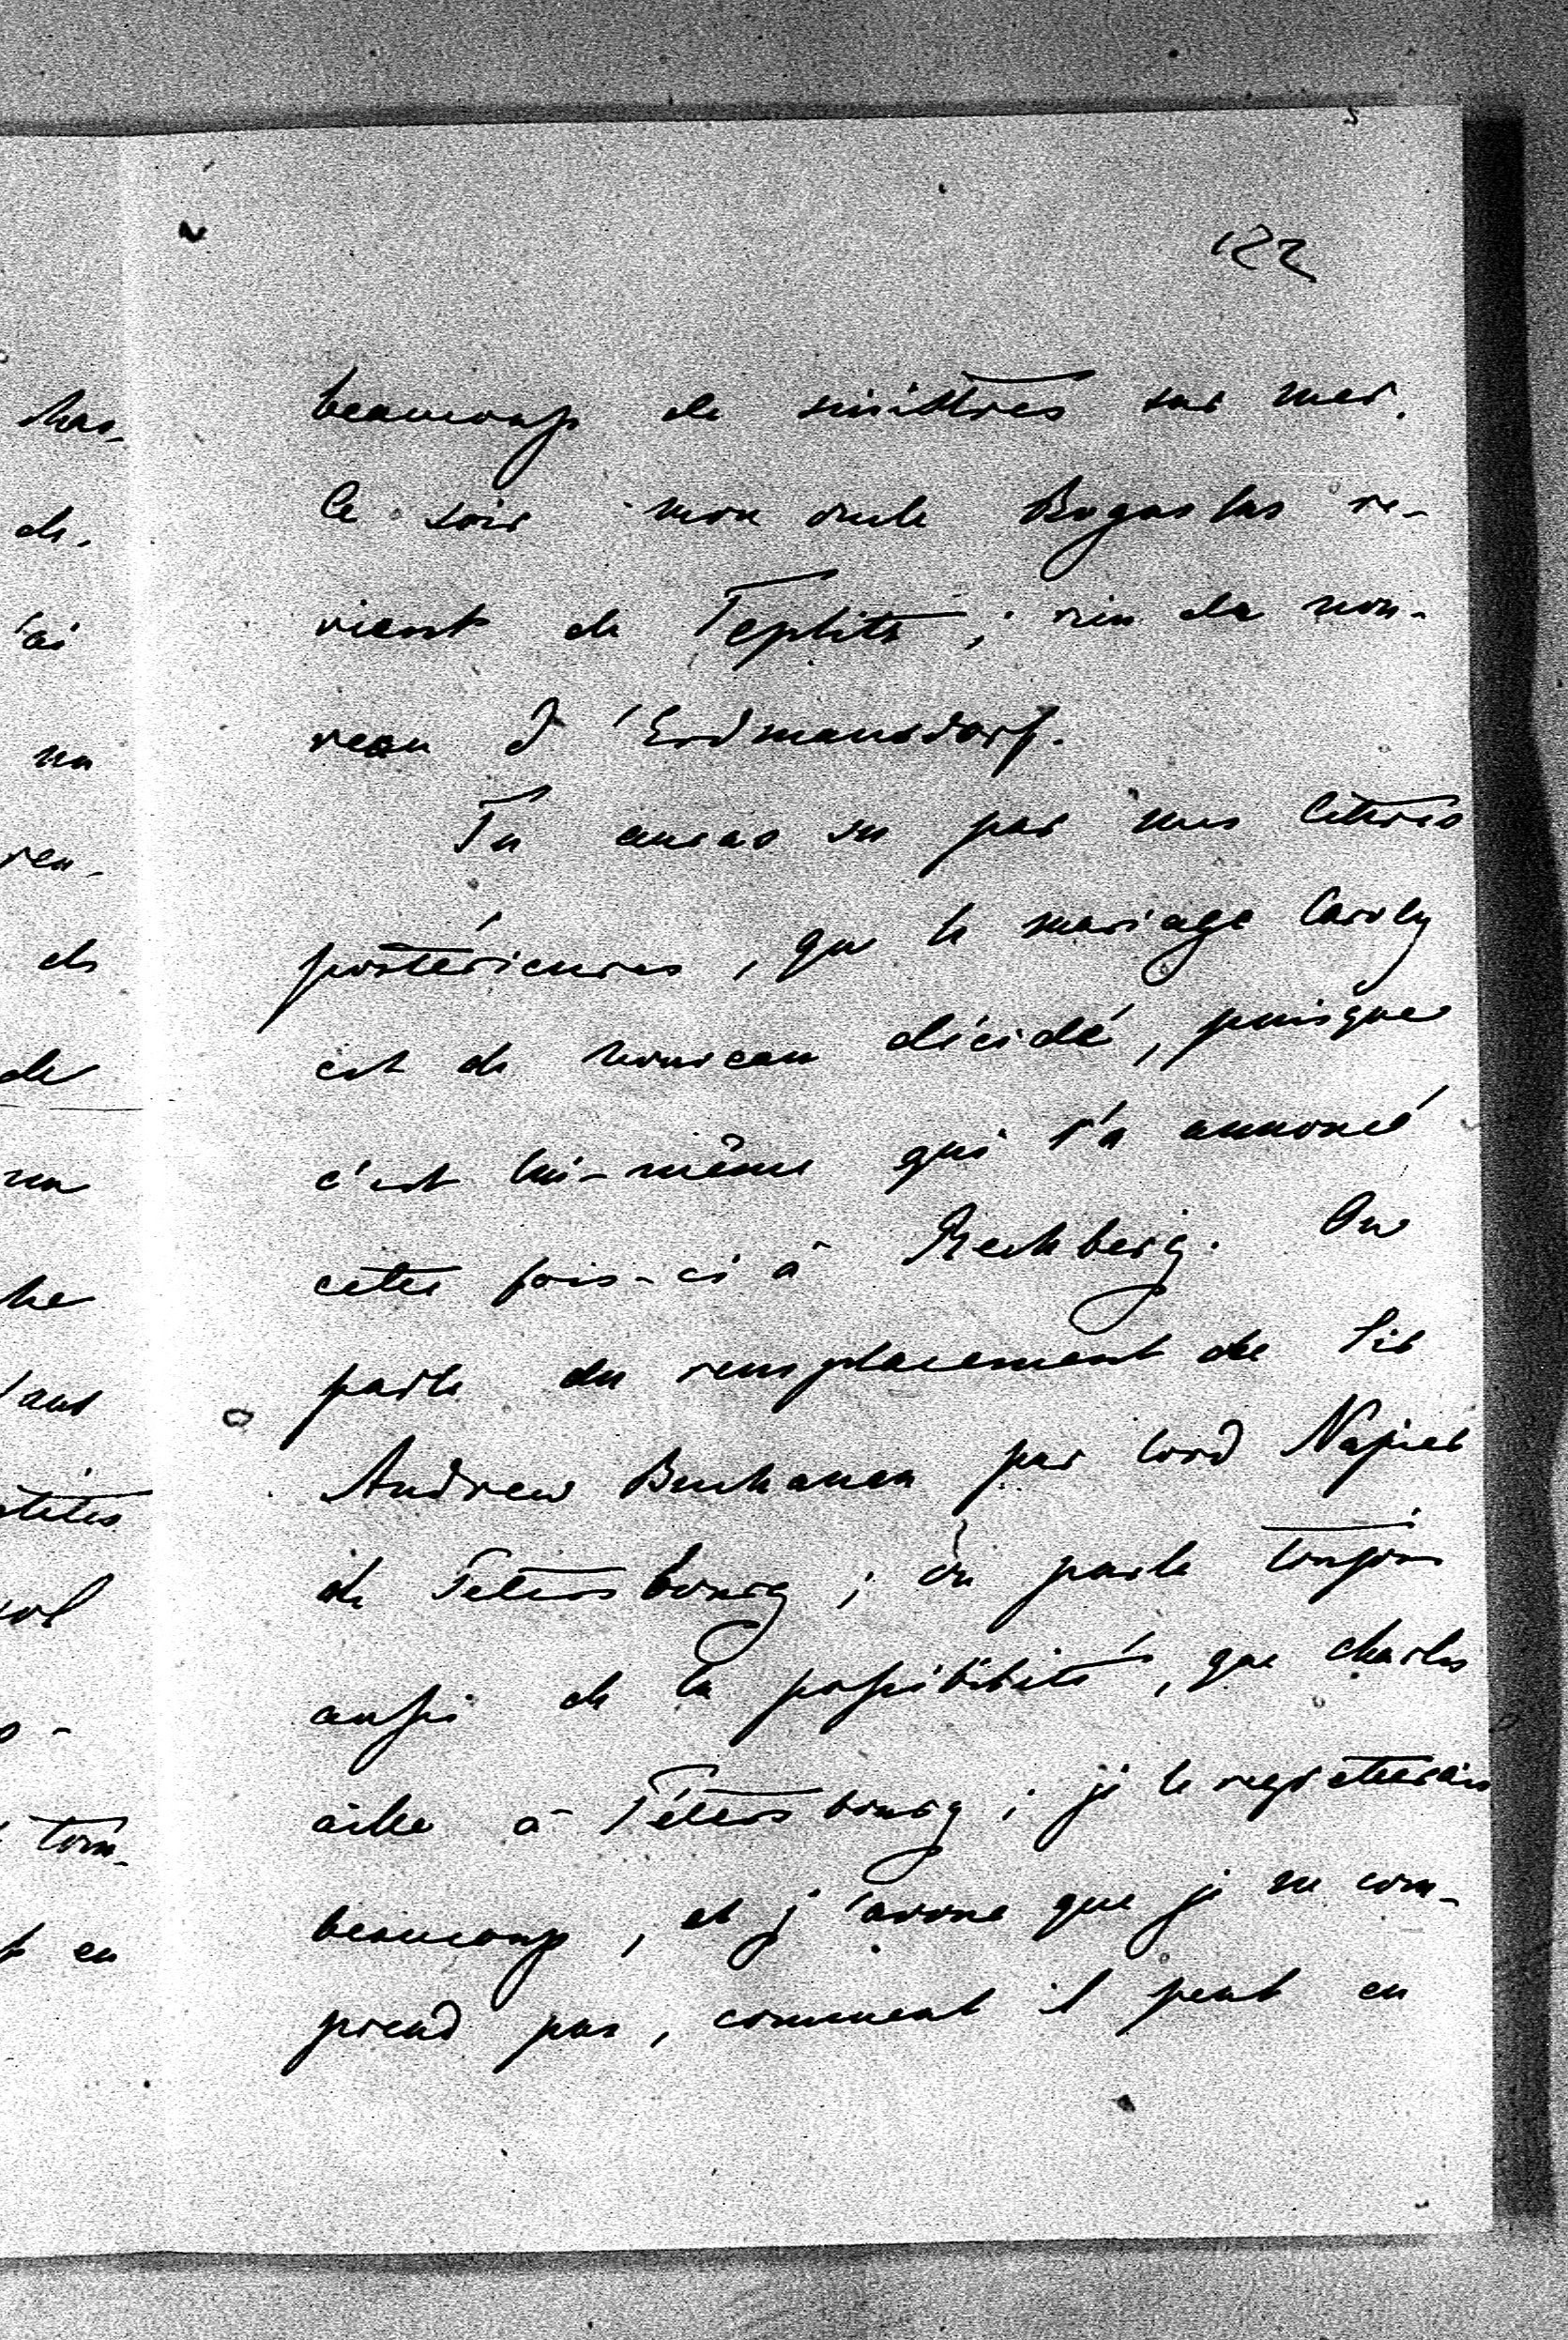 122
beaucoup de sinistres sur mer.
Ce soir mon oncle Boguslas re-
vient de Teplitz ; rien de nou-
veau d'Erdmansdorf.
Tu auras vu par mes lettres
postérieures, que le mariage Caroly
est de nouveau décidé, puisque
c'est lui-même qui l'a annoncé
cette fois-ci à Rechberg. On
parle du remplacement de Sir
Andrew Buchanan par lord Napier
de Pétersbourg ; on parle toujours
aussi de la possibilité, que Charles
aille à Pétersbourg ; je le regretterais
beaucoup, et j'avoue que je ne com-
prend pas, comment il peut en